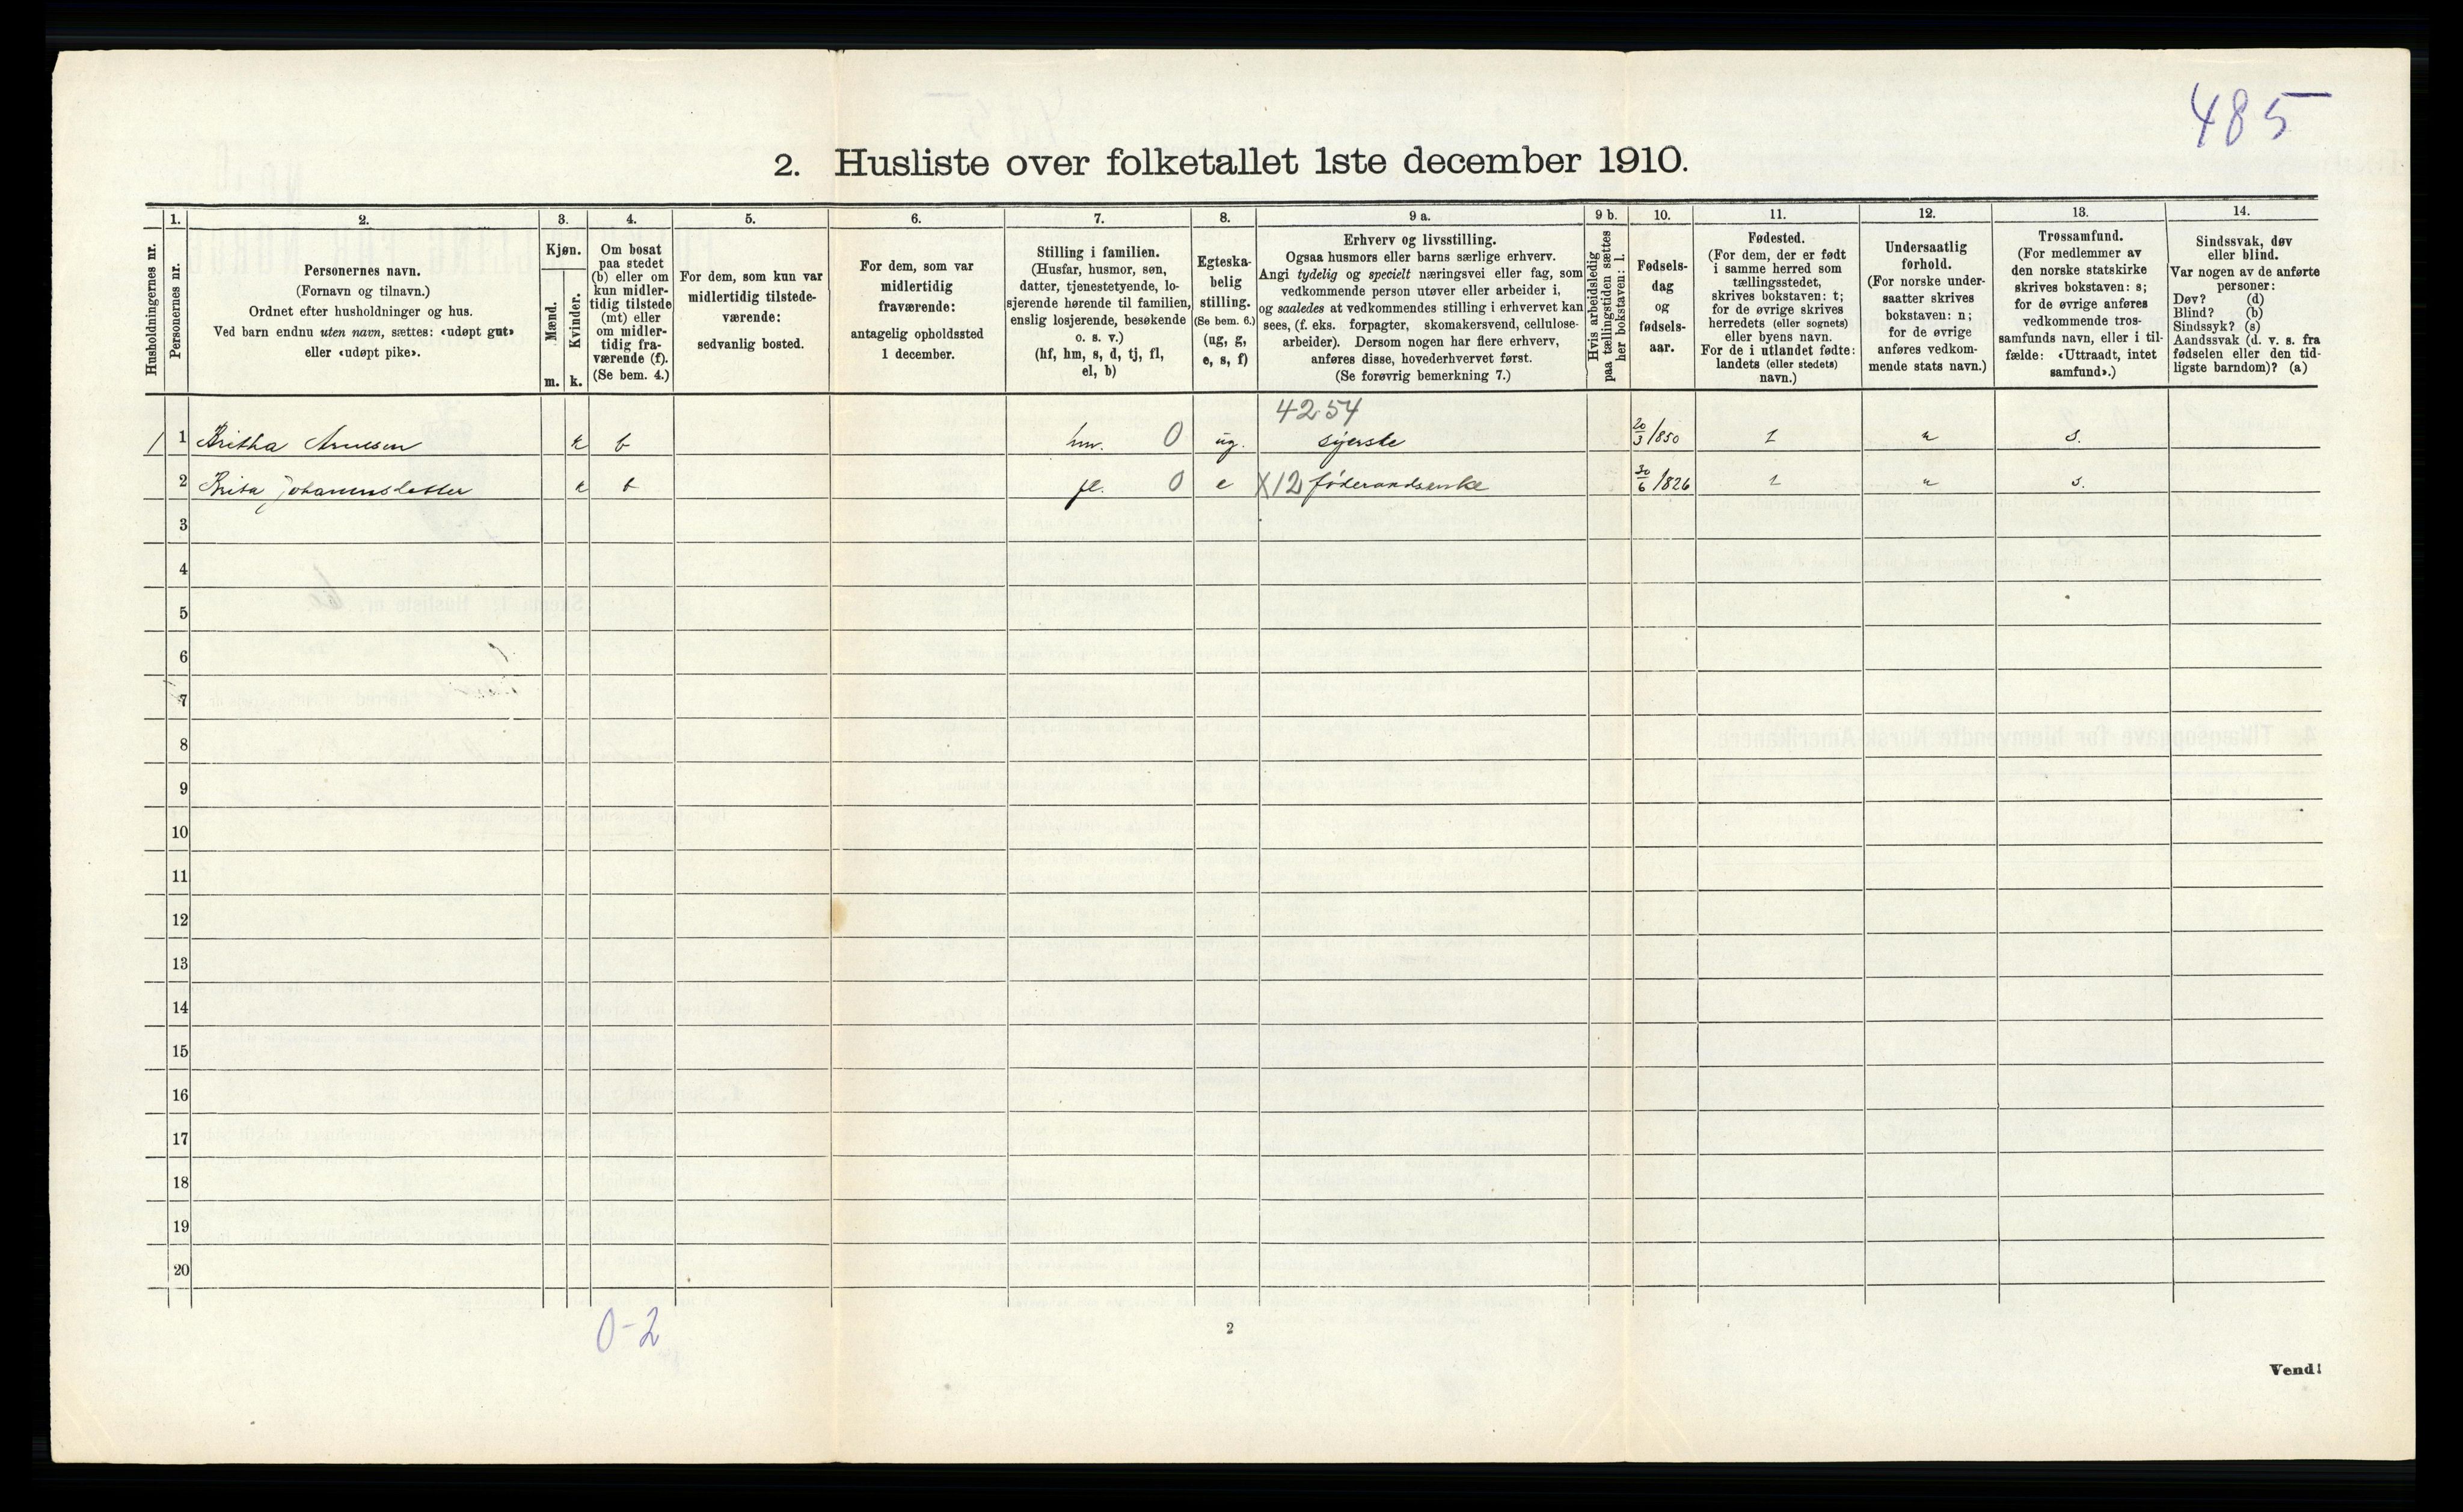 485
2. Husliste over folketallet 1ste december 1910.
Husholdningernes nr.
1.
Personernes nr.
2.
Personernes navn.
(Fornavn og tilnavn.)
Ordnet efter husholdninger og hus.
Ved barn endnu uten navn, sættes: «udøpt gut»
eller «udøpt pike».
3.
Kjøn.
Mænd.
Kvinder.
m. k.
4.
Om bosat
paa stedet
(b) eller om
kun midler-
tidig tilstede
(mt) eller
om midler-
tidig fra-
værende (f).
(Se bem. 4.)
5.
For dem, som kun var
midlertidig tilstede-
værende:
sedvanlig bosted.
6.
For dem, som var
midlertidig
fraværende:
antagelig opholdssted
1 december.
7.
Stilling i familien.
(Husfar, husmor, søn,
datter, tjenestetyende, lo-
sjerende hørende til familien,
enslig losjerende, besøkende
o. s. v.)
(hf, hm, s, d, tj, fl,
el, b)
8.
Egteska-
belig
stilling.
(Se bem. 6.)
(ug, g,
e, s, f)
9 a.
Erhverv og livsstilling.
Ogsaa husmors eller barns særlige erhverv.
Angi tydelig og specielt næringsvei eller fag, som
vedkommende person utøver eller arbeider i,
og saaledes at vedkommendes stilling i erhvervet kan
sees, (f. eks. forpagter, skomakersvend, cellulose-
arbeider). Dersom nogen har flere erhverv,
anføres disse, hovederhvervet først.
(Se forøvrig bemerkning 7.)
9 b.
Hvis arbeidsledig
paa tællingstiden sættes
her bokstaven: l.
10.
Fødsels-
dag
og
fødsels-
aar.
11.
Fødested.
(For dem, der er født
i samme herred som
tællingsstedet,
skrives bokstaven: t;
for de øvrige skrives
herredets (eller sognets)
eller byens navn.
For de i utlandet fødte:
landets (eller stedets)
navn.)
12.
Undersaatlig
forhold.
(For norske under-
saatter skrives
bokstaven: n;
for de øvrige
anføres vedkom-
mende stats navn.)
13.
Trossamfund.
(For medlemmer av
den norske statskirke
skrives bokstaven: s;
for de øvrige anføres
vedkommende tros-
samfunds navn, eller i til-
fælde: «Uttraadt, intet
samfund».)
14.
Sindssvak, døv
eller blind.
Var nogen av de anførte
personer:
Døv? (d)
Blind? (b)
Sindssyk? (s)
Aandssvak (d. v. s. fra
fødselen eller den tid-
ligste barndom)? (a)
4254
1 1 Britha Arnesen k b hm. 0 ug. syerske 20/3 /850 t n s.
2 Brita Johannesdatter k b fl. 0 e X12 føderaadsenke 30/6 /826 t n s.
3
4
5
6
7
8
9
10
11
12
13
14
15
16
17
18
19
20
0-2
2
Vend!